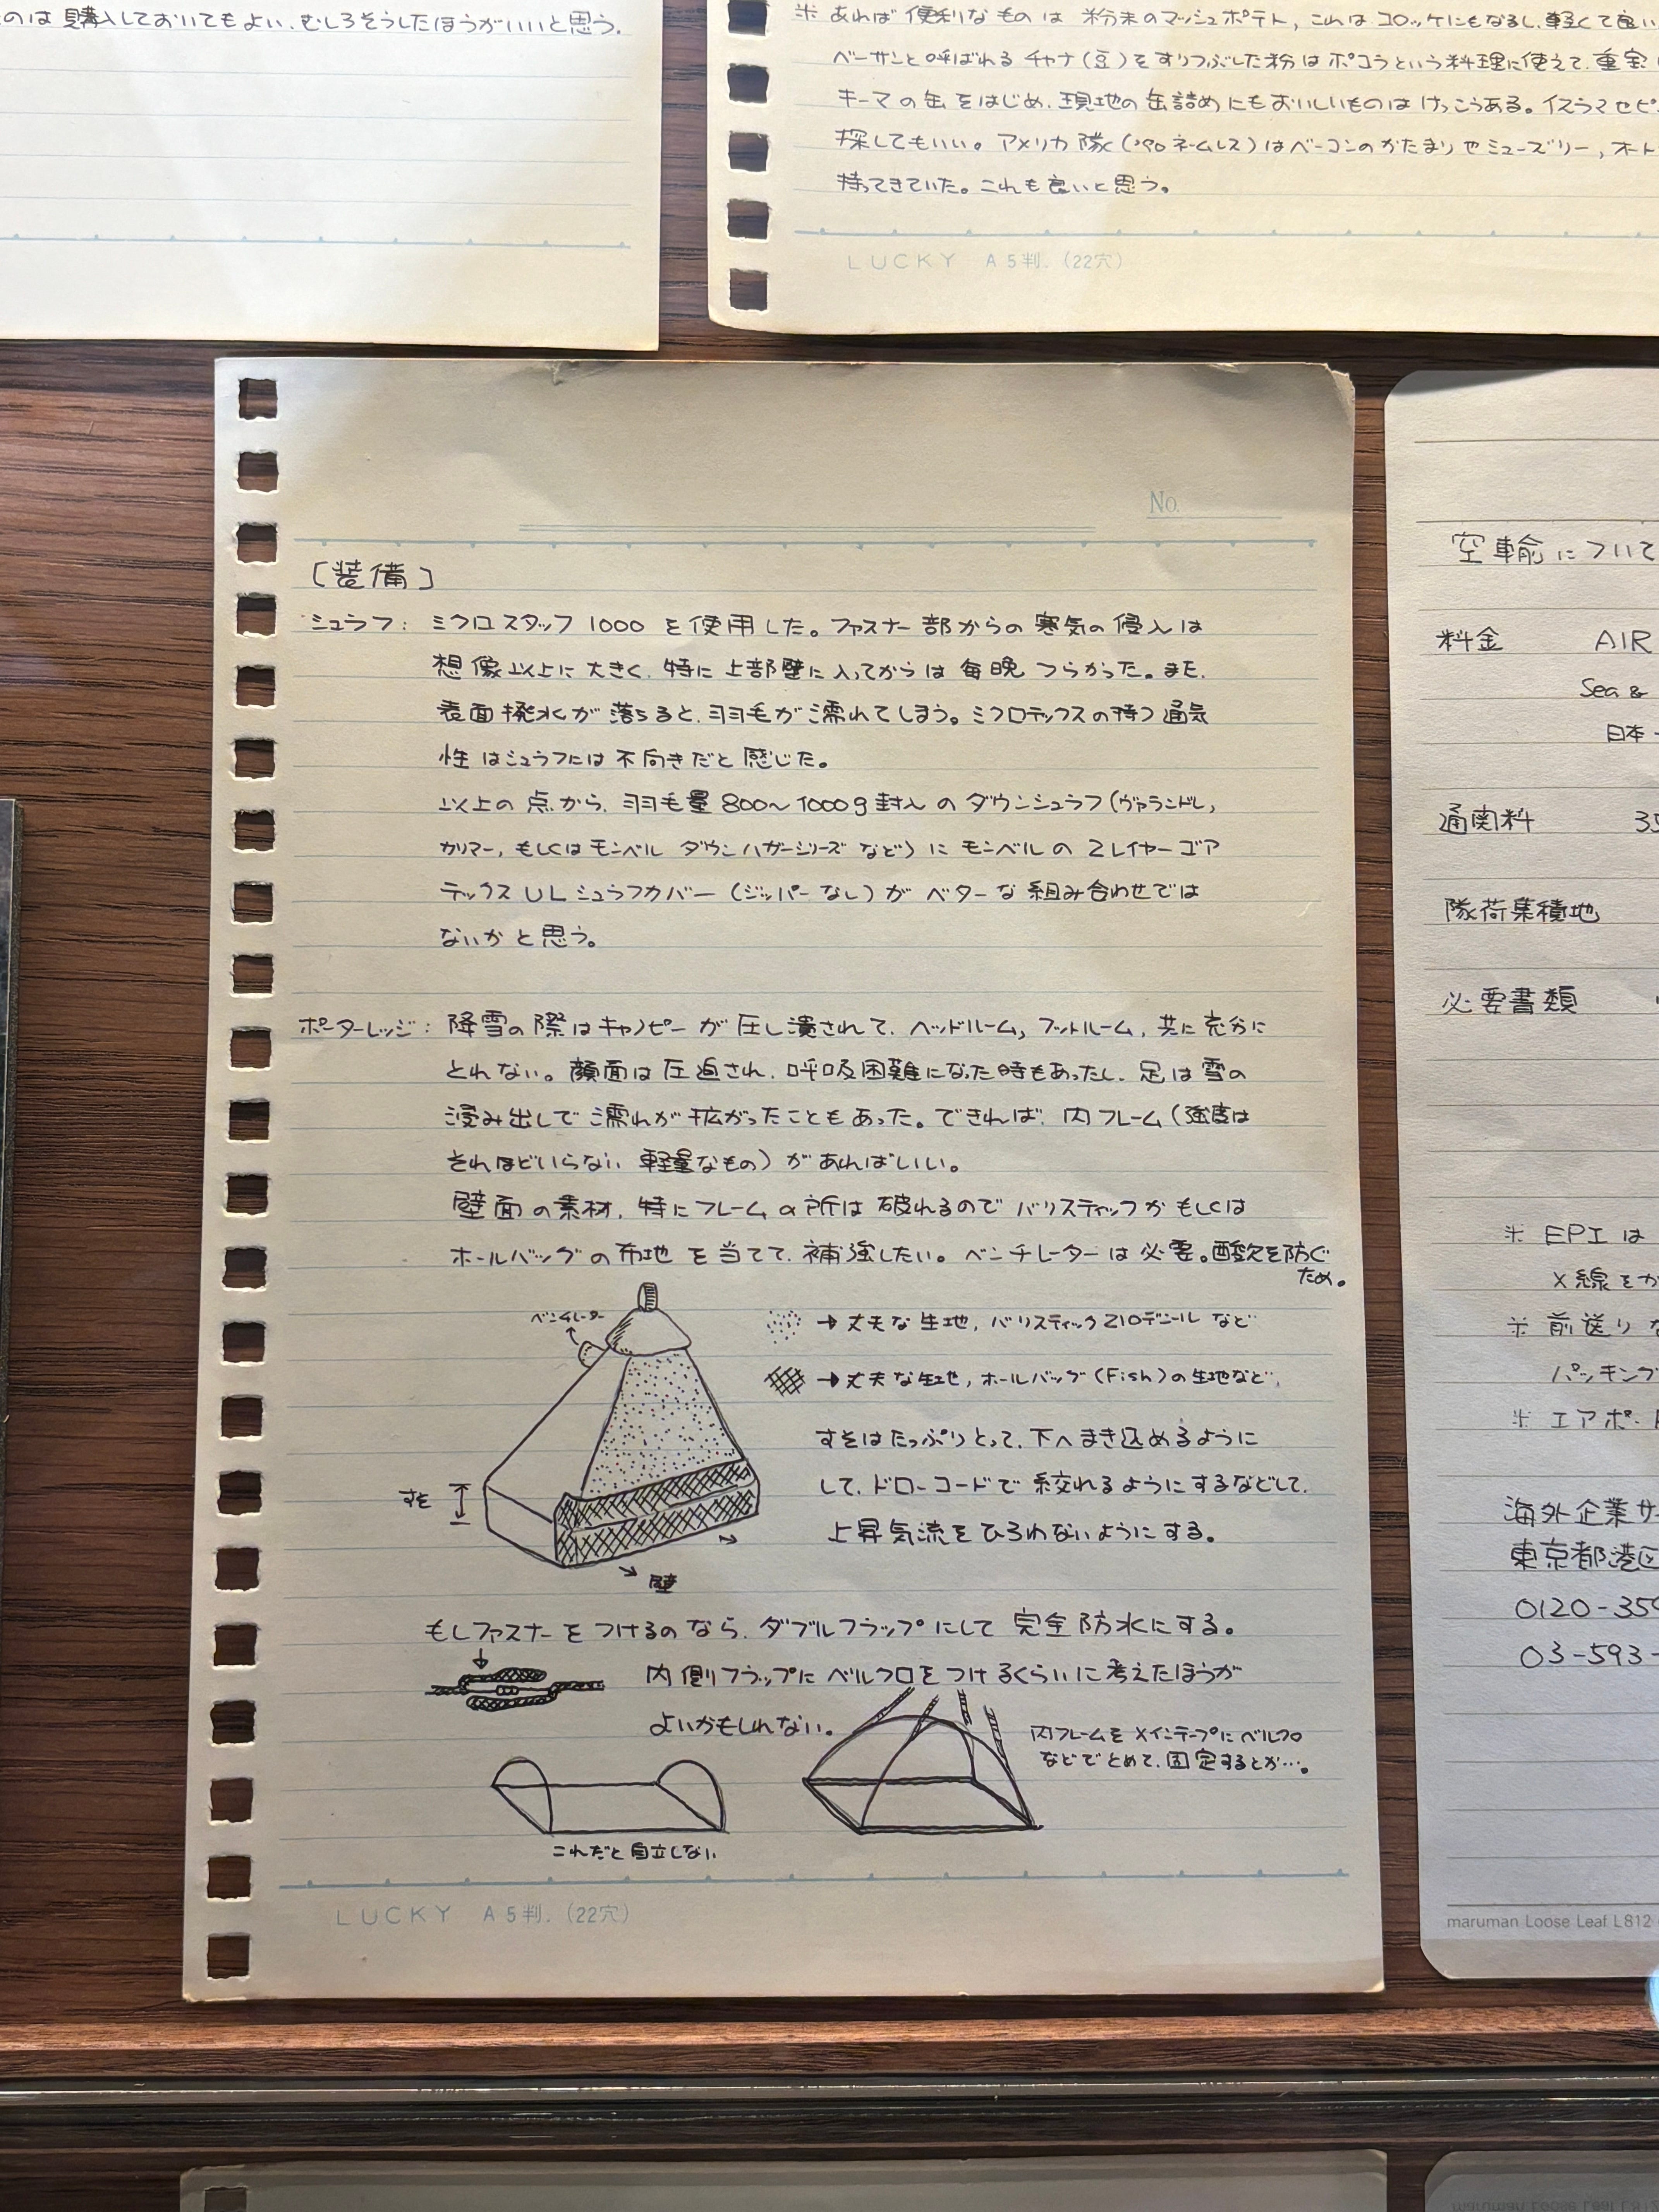 のは購入しておいてもよい、むしろそうしたほうがいいと思う。
※ あれば便利なものは 粉末のマッシュポテト, これはコロッケにもなるし、軽くて良い
ベーサンと呼ばれる チャナ(豆)をすりつぶした粉はポコラという料理に使えて、重宝
キーマの缶をはじめ、現地の缶詰めにもおいしいものはけっこうある。イスラマ
探してもいい。アメリカ隊('90 ネームレス)はベーコンのかたまりやミューズリー, オート
持ってきていた。これも良いと思う。
LUCKY A5判.(22穴)
No.
〔装備〕
シュラフ: ミクロスタッフ1000を使用した。ファスナー部からの寒気の侵入は
想像以上に大きく、特に上部壁に入ってからは毎晩つらかった。また、
表面撥水が落ちると、羽毛が濡れてしまう。ミクロテックスの持つ通気
性はシュラフには不向きだと感じた。
以上の点から、羽毛量800〜1000g封入のダウンシュラフ(ヴァランドレ,
カリマー, もしくはモンベル ダウンハガーシリーズなど)にモンベルの2レイヤーゴア
テックスULシュラフカバー(ジッパーなし)がベターな組み合わせでは
ないかと思う。
ポーターレッジ: 降雪の際はキャノピーが圧し潰されて、ヘッドルーム, フットルーム, 共に充分に
とれない。顔面は圧迫され、呼吸困難になった時もあったし、足は雪の
浸み出しで濡れが拡がったこともあった。できれば、内フレーム(強度は
それほどいらない 軽量なもの)があればいい。
壁面の素材、特にフレームの所は破れるのでバリスティックかもしくは
ホールバッグの布地を当てて、補強したい。ベンチレーターは必要。酸欠を防ぐ
ため。
ベンチレーター
→丈夫な生地, バリスティック210デニールなど
→丈夫な生地, ホールバッグ(Fish)の生地など,
すそはたっぷりとって、下へまき込めるように
して、ドローコードで絞れるようにするなどして、
上昇気流をひろわないようにする。
すそ
壁
もしファスナーをつけるのなら、ダブルフラップにして完全防水にする。
内側フラップにベルクロをつけるくらいに考えたほうが
よいかもしれない。
内フレームをメインテープにベルクロ
などでとめて、固定するとか…。
これだと自立しない
LUCKY A5判.(22穴)
空輸について
料金 AIR
Sea &
日本
通関料 35
隊荷集積地
必要書類
※ EPIは
X線をか
※ 前送りな
パッキング
※ エアポート
海外企業サ
東京都港区
0120-359
03-593-
maruman Loose Leaf L812